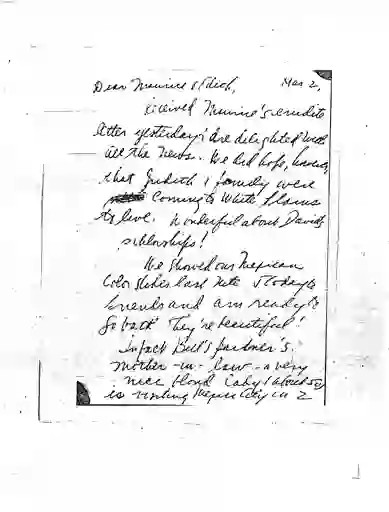 Dear Maurice & Edith, Mar 2,
received Maurice's erudite
letter yesterday & are delighted with
all the news. We did hope, however
that Judith & family were
coming to White Plains
to live. Wonderful about David's
scholarships!
We showed our Mexican
color slides last nite & today to
friends and am ready to
go back. They're beautiful!
In fact Bill's partner's
mother-in-law - a very
nice blond lady (about 50)
is visiting Mexico City in 2